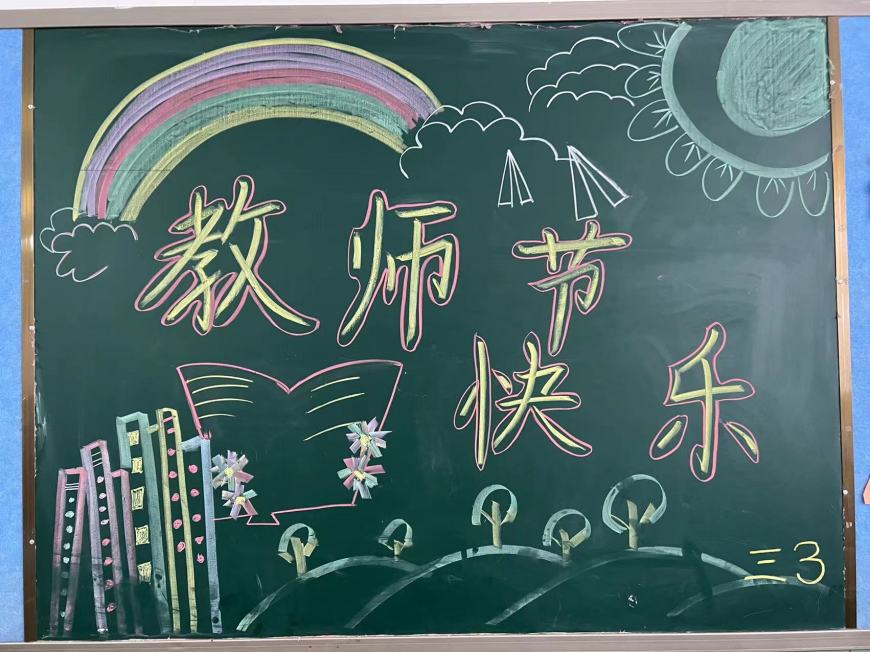 教师节
快乐
三3